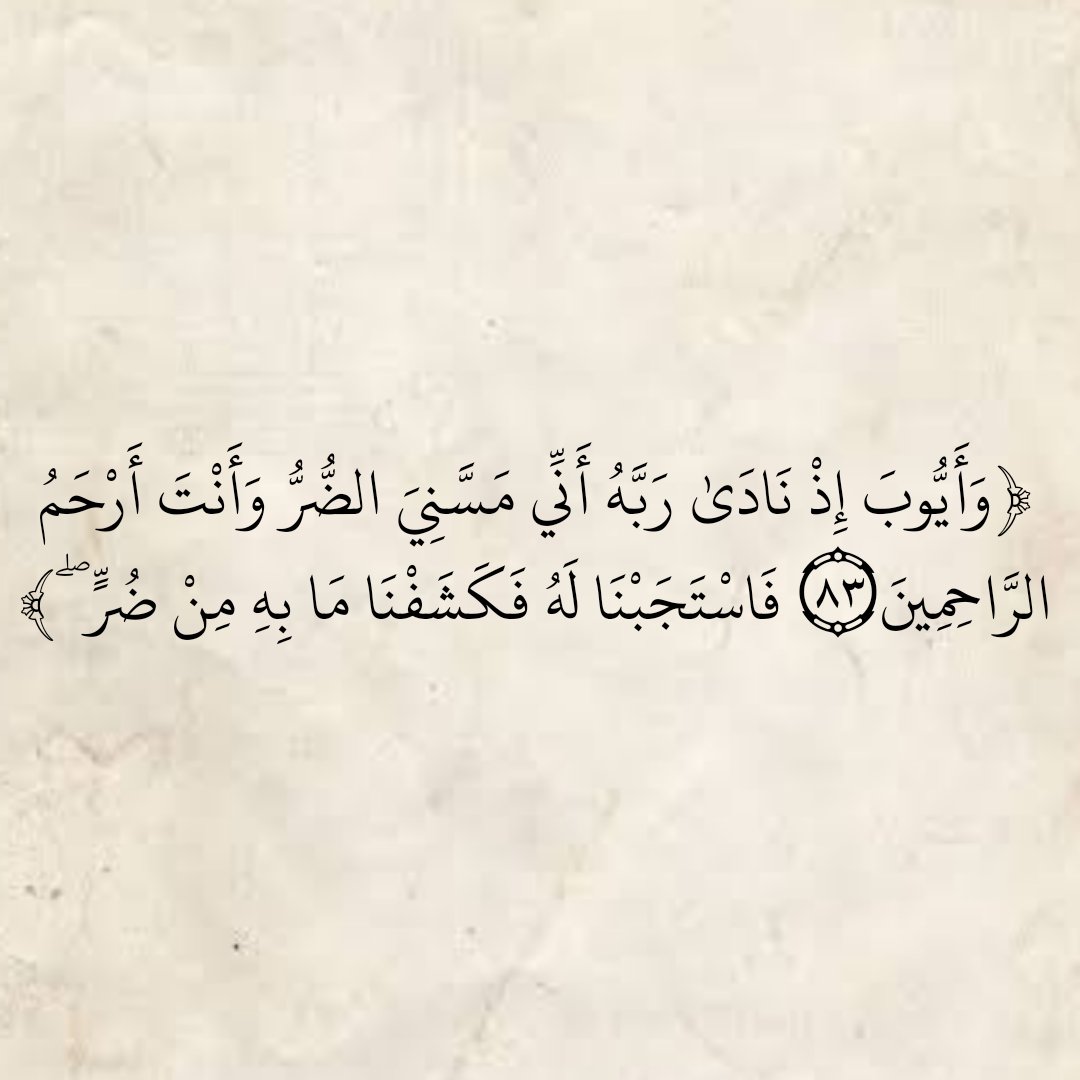 ﴿وَأَيُّوبَ إِذْ نَادَىٰ رَبَّهُ أَنِّي مَسَّنِيَ الضُّرُّ وَأَنْتَ أَرْحَمُ
الرَّاحِمِينَ ۝٨٣ فَاسْتَجَبْنَا لَهُ فَكَشَفْنَا مَا بِهِ مِنْ ضُرٍّ ۖ﴾